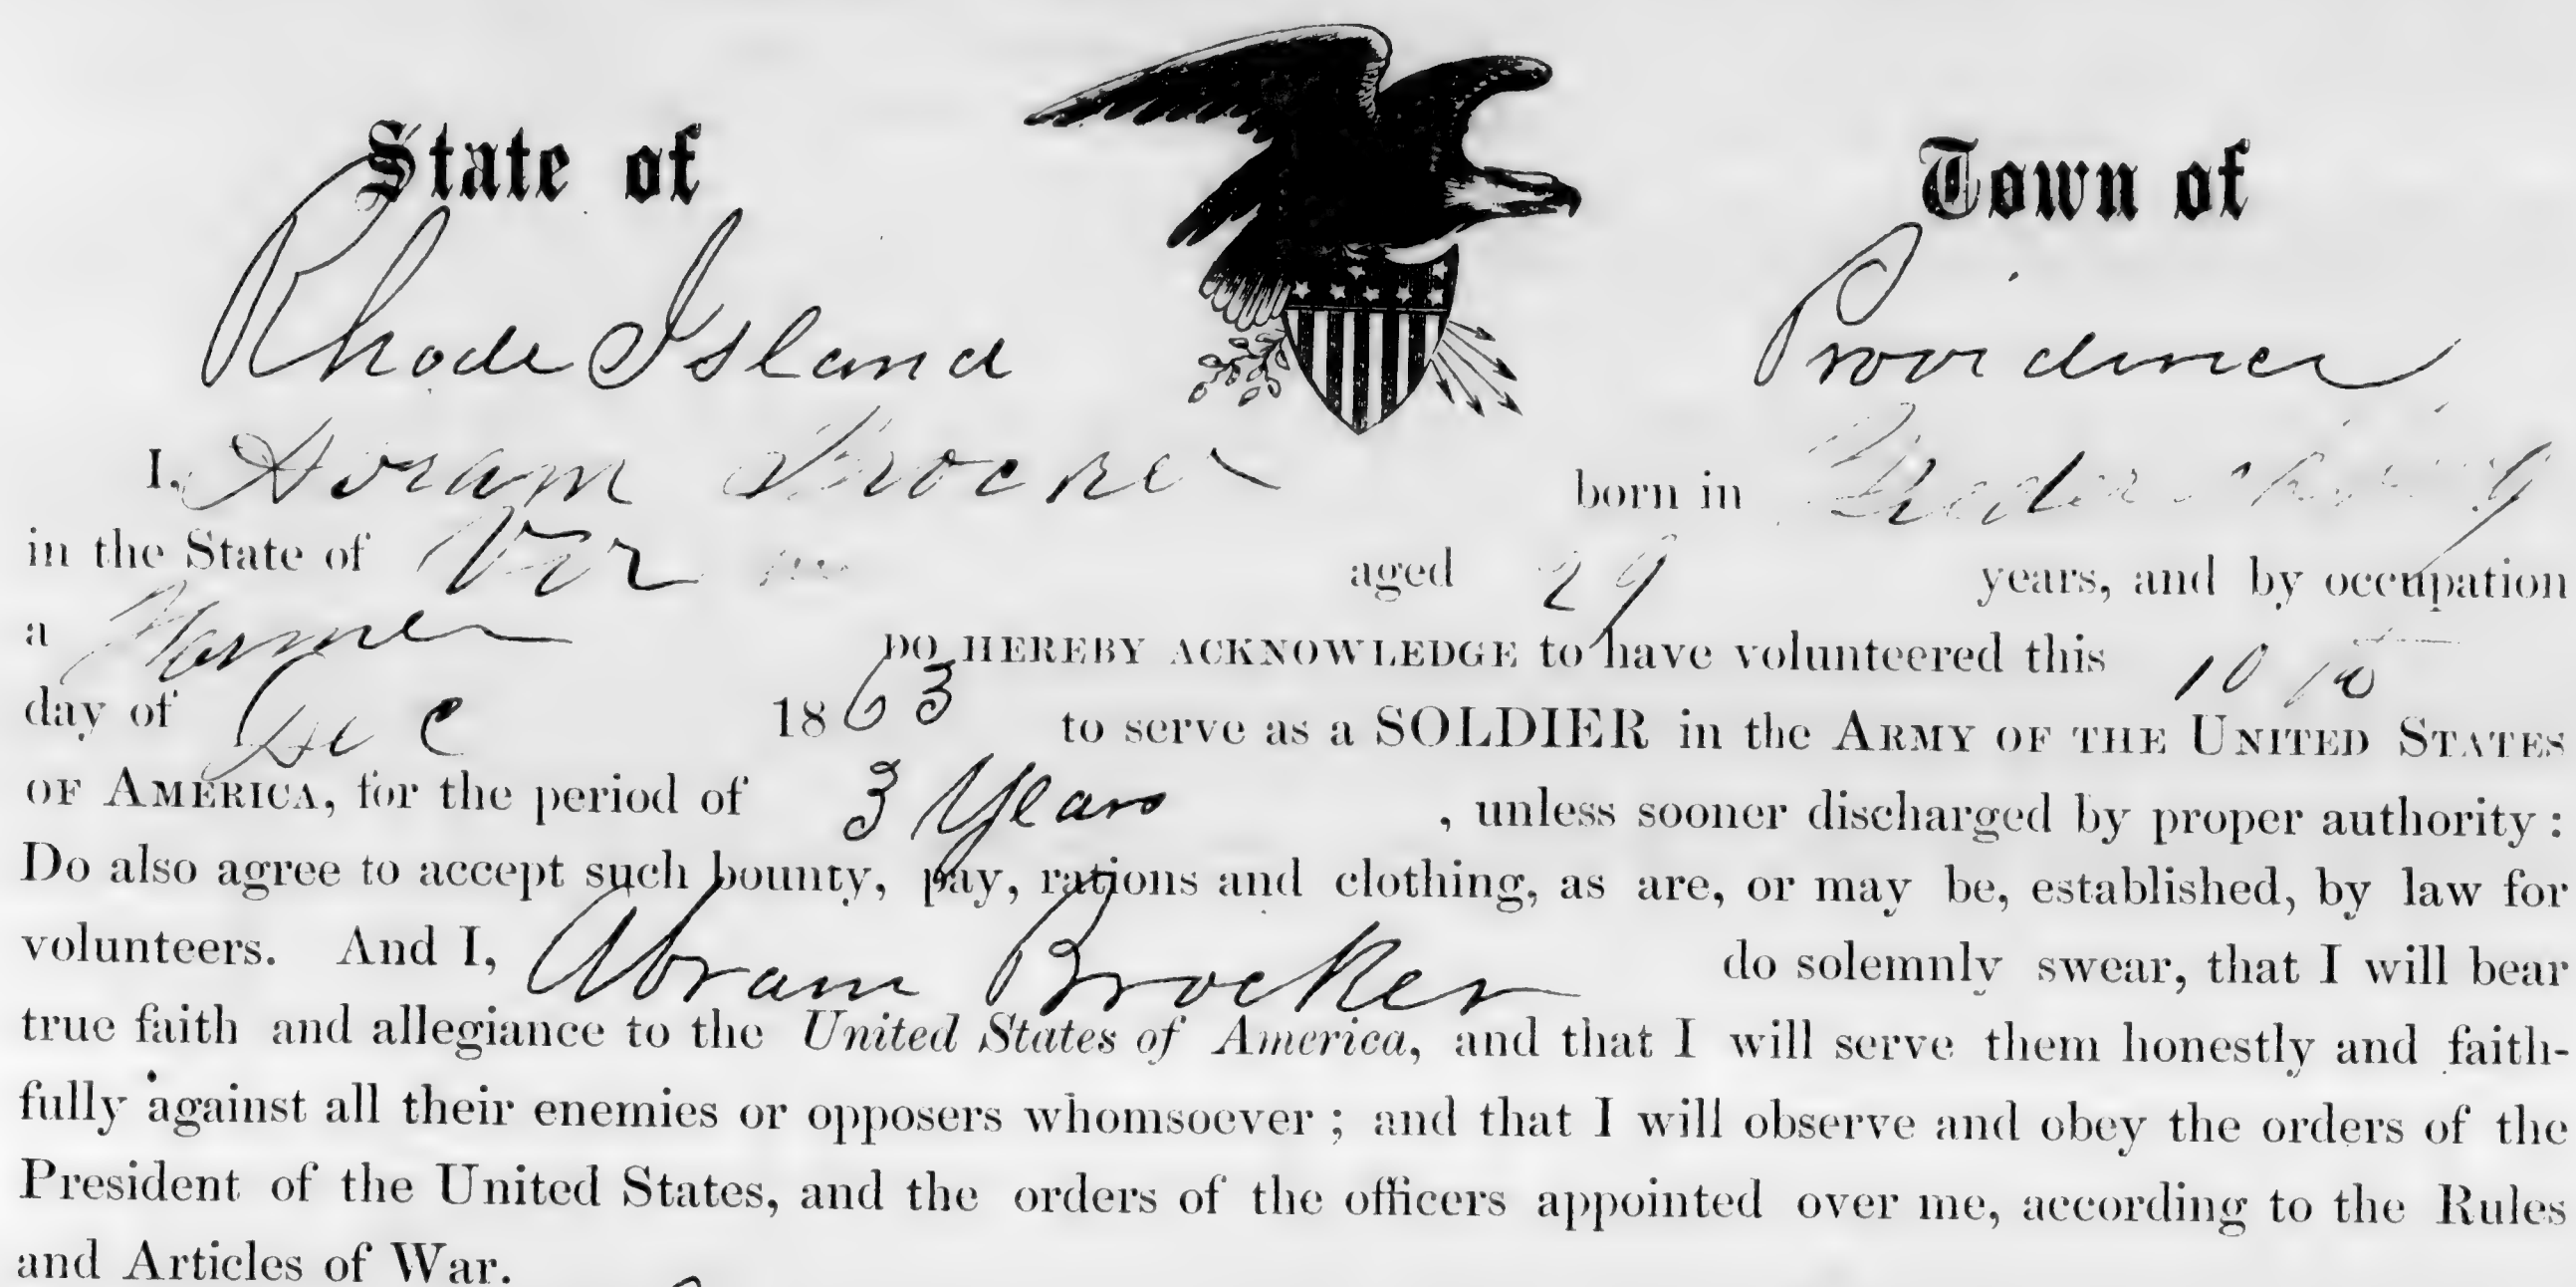 State of Town of
Rhode Island Providence
I, Abram Brocker born in
in the State of aged 29 years, and by occupation
a Farmer DO HEREBY ACKNOWLEDGE to have volunteered this 10
day of Dec 1863 to serve as a SOLDIER in the ARMY OF THE UNITED STATES
OF AMERICA, for the period of 3 Years , unless sooner discharged by proper authority :
Do also agree to accept such bounty, pay, rations and clothing, as are, or may be, established, by law for
volunteers. And I, Abram Brocker do solemnly swear, that I will bear
true faith and allegiance to the United States of America, and that I will serve them honestly and faith-
fully against all their enemies or opposers whomsoever ; and that I will observe and obey the orders of the
President of the United States, and the orders of the officers appointed over me, according to the Rules
and Articles of War.